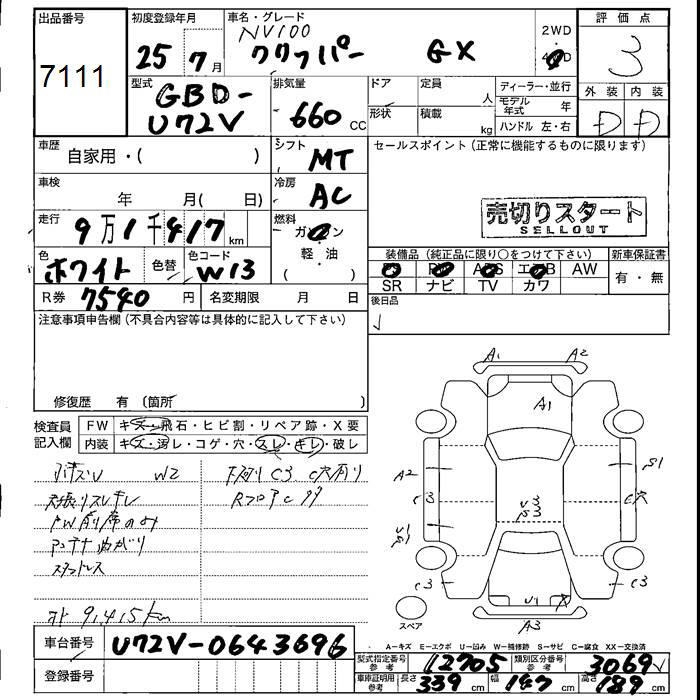 出品番号 初度登録年月 車名・グレード 2WD 評価点
7111 25 7月 NV100 クリッパー GX 4WD 3
型式 排気量 ドア 定員 ディーラー・並行 外装 内装
GBD-U72V 660 CC 人 モデル年式 年 D D
形状 積載 kg ハンドル 左・右
車歴 シフト セールスポイント(正常に機能するものに限ります)
自家用・( ) MT
車検 冷房
年 月( 日) AC 売切りスタート
SELLOUT
走行 燃料
9万1千417km ガソリン
軽・油
( )
色 色コード 装備品(純正品に限り○をつけて下さい) 新車保証書
ホワイト 色替 W13 エアB AW 有・無
SR ナビ TV カワ
R券 7540円 名変期限 月 日 後日品
注意事項申告欄(不具合内容等は具体的に記入して下さい)
修復歴 有(箇所 )
検査員記入欄 FW キズ・飛石・ヒビ割・リペア跡・X要
内装 キズ・汚レ・コゲ・穴・スレ・キレ・破レ
W2 下回りC3 穴有り
天張りスレキレ
PW前席のみ
アンテナ曲がり
スタッドレス
91,415km
A1 A2
A1
A2 S1
C3 U3 C穴
S3
U1
S1
C3 C3
U1 X
スペア A3
A-キズ E-エクボ U-凹み W-補修跡 S-サビ C-腐食 XX-交換済
車台番号 U72V-0643696
型式指定番号 参考 12705 類別区分番号 参考 3069
登録番号 車庫証明用 参考 長さ 339cm 幅 147cm 高さ 189cm